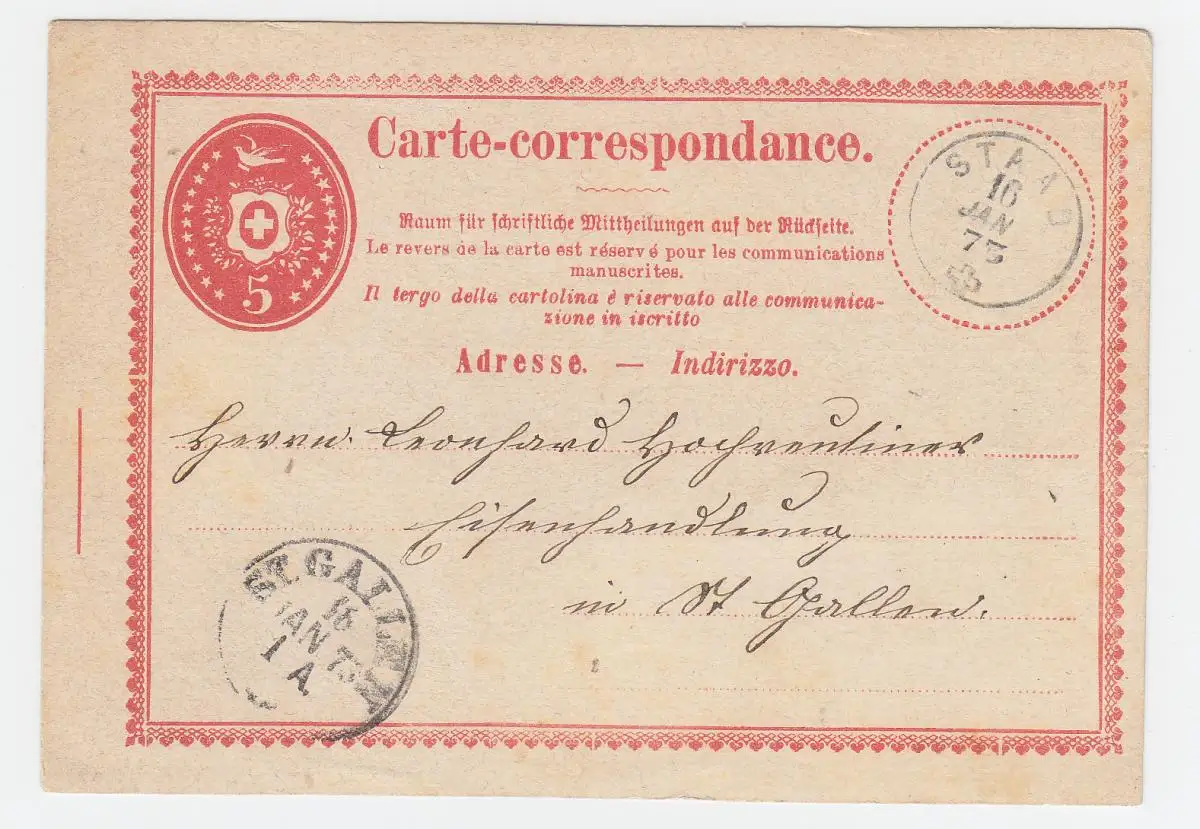 Carte-correspondance.
5
Raum für schriftliche Mittheilungen auf der Rückseite.
Le revers de la carte est réservé pour les communications
manuscrites.
Il tergo della cartolina è riservato alle communica-
zione in iscritto
Adresse. — Indirizzo.
STAAD
16
JAN
73
Herrn Leonhard Hochreutiner
Eisenhandlung
in St Gallen.
ST. GALLEN
16
JAN 73
1 A